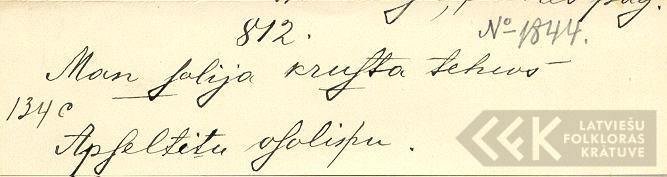 812. № 1844.
Man solija krusta tehws
134 c
Apseltitu osolinu.
LATVIEŠU
FOLKLORAS
KRĀTUVE